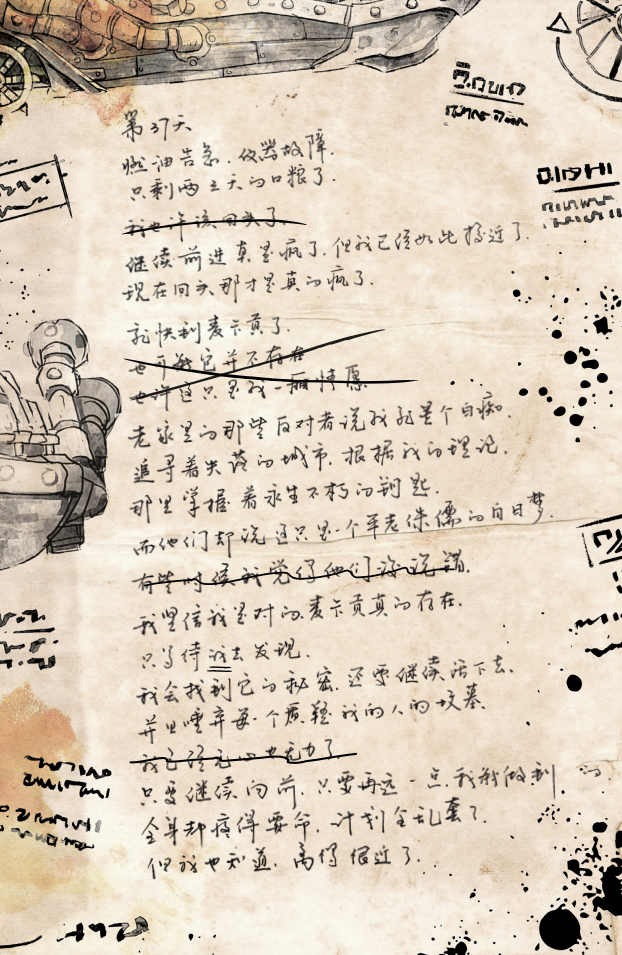 第37天
燃油告急.仪器故障.
只剩两三天的口粮了.
我也许该回头了
继续前进真是疯了.但我已经如此接近了.
现在回头那才是真的疯了.
就快到麦卡贡了.
也可能它并不存在
也许这只是我一厢情愿
老家里的那些反对者说我就是个白痴.
追寻着失落的城市.根据我的理论.
那里掌握着永生不朽的钥匙.
而他们却说这只是一个年老侏儒的白日梦.
有些时候我觉得他们没说错.
我坚信我是对的.麦卡贡真的存在.
只等待我去发现.
我会找到它的秘密.还要继续活下去.
并且唾弃每一个质疑我的人的坟墓.
我已经无心也无力了
只要继续向前.只要再远一点.我能做到的
全身都疼得要命.计划全乱套了.
但我也知道.离得很近了.